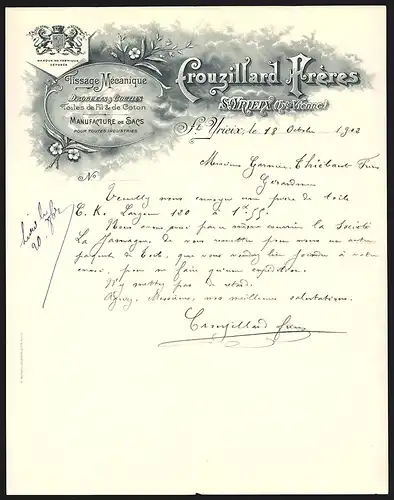 MARQUE DE FABRIQUE
DÉPOSÉE
Tissage Mécanique
DROGUETS & COUTILS
Toiles de Fil & de Coton
MANUFACTURE DE SACS
POUR TOUTES INDUSTRIES
Crouzillard Frères
St YRIEIX (Hte Vienne)
St Yrieix, le 18 Octobre 1902
Messieurs Garnier-Thiébaut Frères
Gérardmer
No
Veuillez nous envoyer une pièce de toile
C. K. Largeur 120 à 1f.55.
Nous avons prié par courrier la Société
La de vous remettre pour nous un petit
paquet de toile, que vous voudrez bien joindre à votre
envoi, pour ne faire qu'une expédition.
N'y mettez pas de retard.
Agréez, Messieurs, nos meilleures salutations.
Crouzillard frères